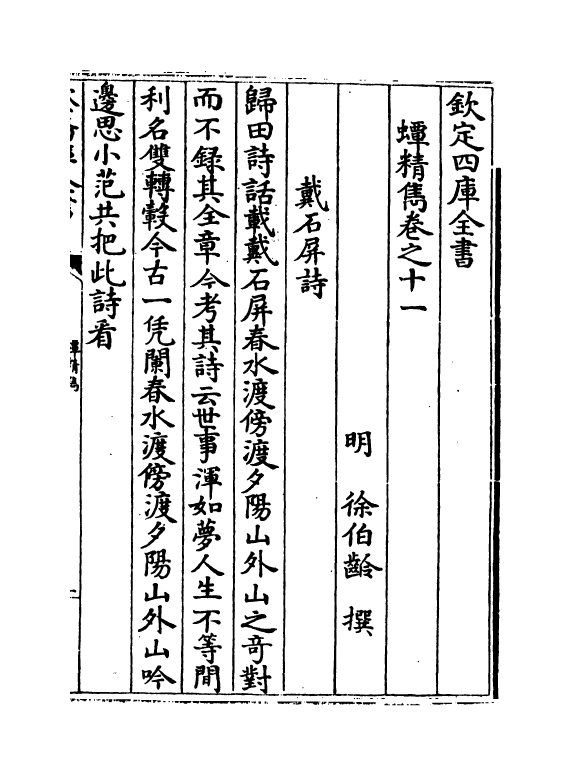 欽定四庫全書
蟫精雋卷之十一
明 徐伯齡 撰
戴石屏詩
歸田詩話載戴石屏春水渡傍渡夕陽山外山之竒對
而不録其全章今考其詩云世事渾如夢人生不等閒
利名雙轉轂今古一凭闌春水渡傍渡夕陽山外山吟
邊思小范共把此詩看